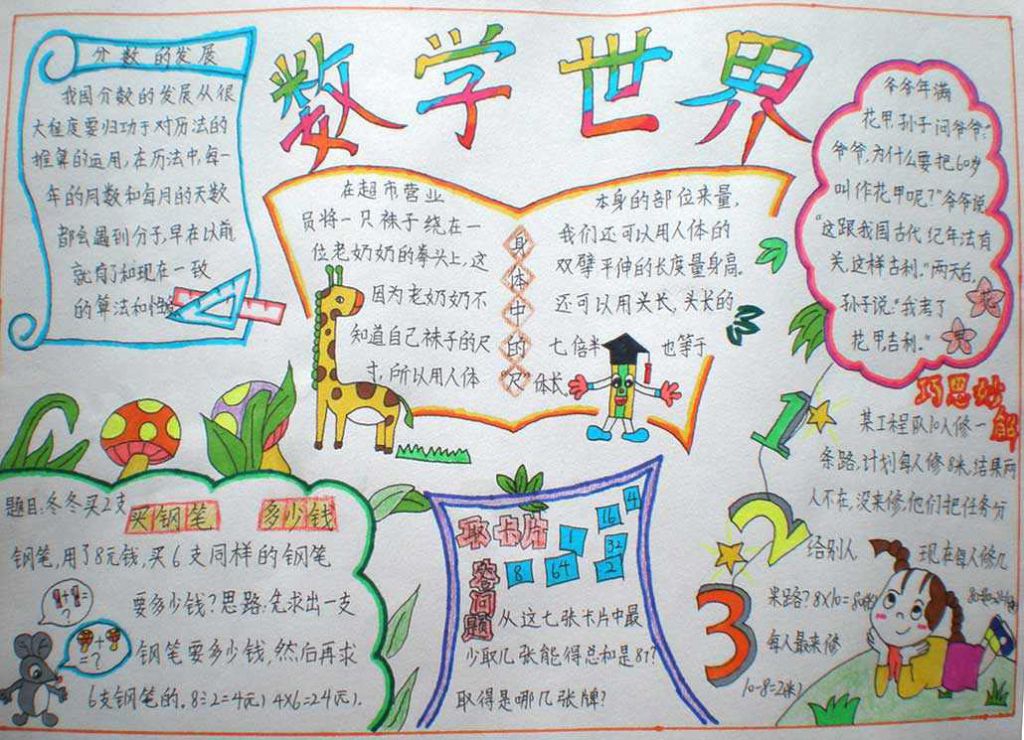 数学世界
分数的发展
我国分数的发展从很
大程度要归功于对历法的
推算的运用,在历法中,每一
年的月数和每月的天数
都会遇到分子,早在以前
就有了和现在一致
的算法和
身体中的"尺"
在超市营业
员将一只袜子绕在一
位老奶奶的拳头上,这
因为老奶奶不
知道自己袜子的尺
寸,所以用人体
本身的部位来量,
我们还可以用人体的
双臂平伸的长度量身高。
还可以用头长,头长的
七倍半 也等于
体长。
爷爷年满
花甲,孙子问爷爷:"
爷爷,为什么要把60岁
叫作花甲呢?"爷爷说
"这跟我国古代纪年法有
关,这样吉利。"两天后,
孙子说:"我考了
花甲,吉利。"
巧思妙解
某工程队10人修一
条路,计划每人修8米,结果两
人不在,没来修,他们把任务分
给别人 现在每人修几
米路?8×10=80
每人最来修
10-8=2(米)
买钢笔 多少钱
题目:冬冬买2支
钢笔,用了8元钱,买6支同样的钢笔
要多少钱?思路:先求出一支
钢笔要多少钱,然后再求
6支钢笔的。8÷2=4(元) 4×6=24(元).
+ =?
+ =?
取卡片
答问题
4
16
1
32
8
64
2
从这七张卡片中最
少取几张能得总和是81?
取得是哪几张牌?
1
2
3